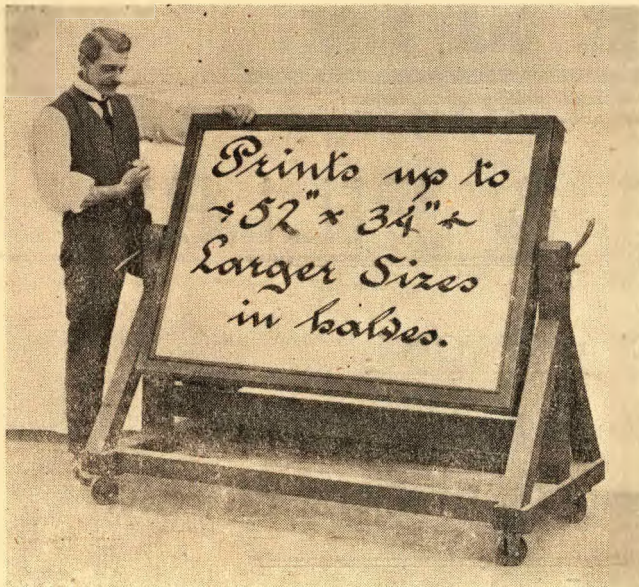 Prints up to
52" × 34"
Larger Sizes
in halves.